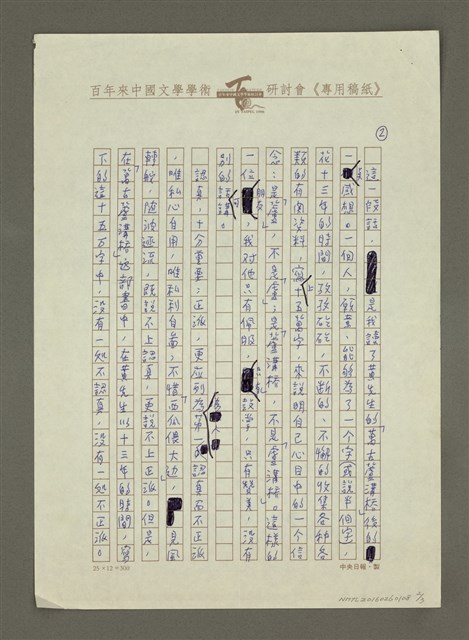 百年來中國文學學術研討會《專用稿紙》
②
這一段話,是我讀了黃先生的「萬古蘆溝橋」後的
一點感想。一個人,願意、能夠為了一個字或說半個字,
花十三年的時間,孜孜矻矻,不斷的、不懈的收集各種各
類的有關資料,寫上十五萬字,來說明自己心目中的一個信
念:是「蘆」,不是「盧」;是「蘆溝橋」,不是「盧溝橋」。這樣的
一位朋友,我對他只有佩服,設學,只有贊美,沒有
別的話講。
認真,十分重要;正派,更應列為第一。認真而不正派
,唯私心自用,唯私利自圖;不惜西瓜偎大邊,見風
轉舵,隨波逐流,既說不上認真,更說不上正派。但是,
在「萬古蘆溝橋」這部書中,在黃先生以十三年的時間,寫
下的這十五萬字中,沒有一處不認真,沒有一處不正派。
25×12=300
中央日報‧製